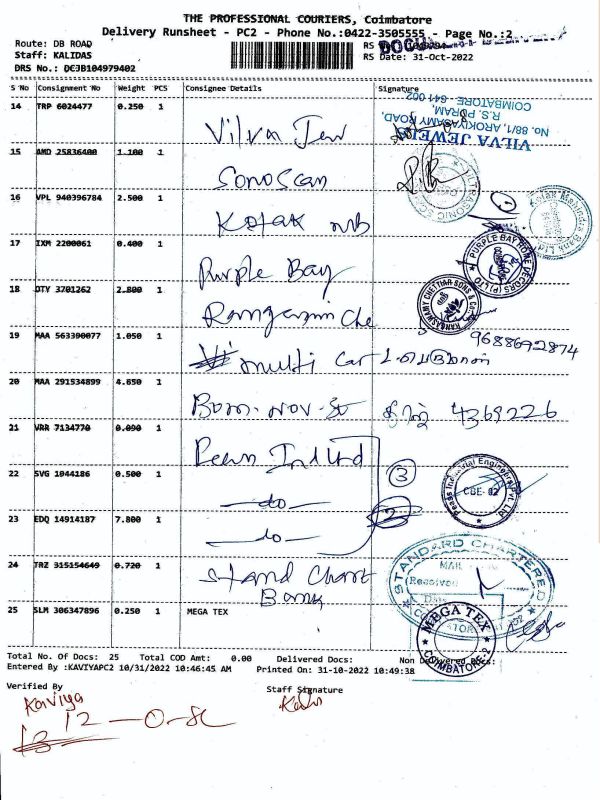 THE PROFESSIONAL COURIERS, Coimbatore
Delivery Runsheet - PC2 - Phone No.:0422-3505555 - Page No.:2
Route: DB ROAD
Staff: KALIDAS
RS Date: 31-Oct-2022
DRS No.: DCJB104979402
S No Consignment No Weight PCS Consignee Details Signature
14 TRP 6024477 0.250 1 Vilva Jew
VILVA JEWEL
No. 88/1, AROKIYASAMY ROAD,
R.S. PURAM,
COIMBATORE - 641 002
15 AMD 25836400 1.100 1 Sonoscan
16 VPL 940396784 2.500 1 Kotak MB
Kotak Mahindra Bank Ltd
17 IXM 2200061 0.400 1 Purple Bay
PURPLE BAY HOME DECORS (P) LTD
18 DTY 3701262 2.800 1 Ranganin Che
RANGASWAMY CHETTIAR SONS & Co
19 MAA 563390077 1.050 1 multi car
9688692874
20 MAA 291534899 4.650 1 Bom-Nov-St 4369226
21 VRR 7134770 0.090 1 Peen Ind Ltd
22 SVG 1044186 0.500 1 —do— 3
CBE-02
23 EDQ 14914187 7.800 1 —do— 2
24 TRZ 315154649 0.720 1 Stand Chart
Bank
STANDARD CHARTERED
Received
Date
25 SLM 306347896 0.250 1 MEGA TEX
MEGA TEX
COIMBATORE-2
Total No. Of Docs: 25 Total COD Amt: 0.00 Delivered Docs: Non Delivered Docs:
Entered By :KAVIYAPC2 10/31/2022 10:46:45 AM Printed On: 31-10-2022 10:49:38
Verified By Staff Signature
Kaviya
12 —O-SC
13